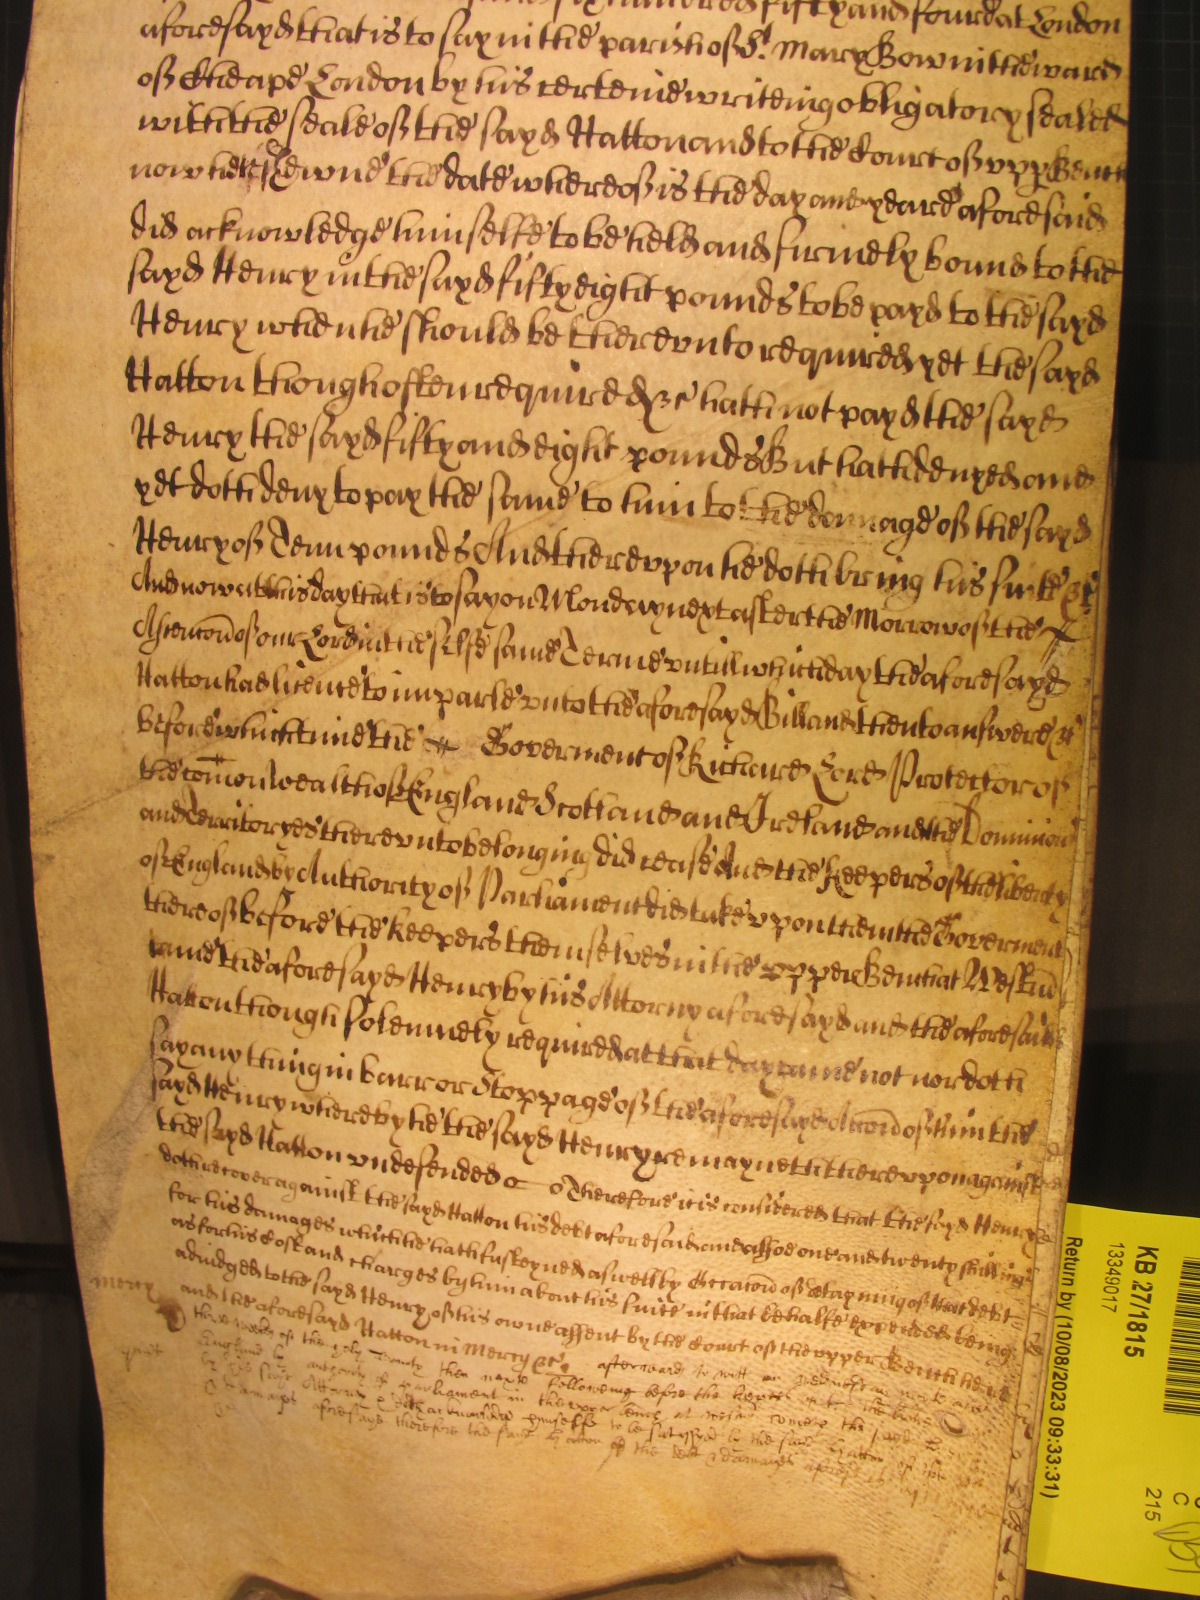 six hundred fifty and foure at London
aforesayd that is to say in the parish of St. Mary Bow in the ward
of Cheape London by his certeine writeing obligatory sealed
with the seale of the sayd Hatton and to the Court of vpp Bench
now here shewne the date whereof is the day and yeare aforesaid
did acknowledge himselfe to be held and firmely bound to the
sayd Henry in the sayd fifty eight pounds to be payd to the sayd
Henry when he should be therevnto required yet the sayd
Hatton though often required &c hath not payd the sayd
Henry the sayd fifty and eight pounds But hath denyed and
yet doth deny to pay the same to him to the damage of the sayd
Henry of Tenn pounds And therevpon he doth bring his suite &c
And now at this day that is to say on Monday next after the Morrow of the
Ascencion of our Lord in the selfe same Terme vntill which day the aforesayd
Hatton had licence to imparle vnto the aforesayd Bill and then to answere &c
before which time the Goverment of Richard Lord Protector of
the comon Wealth of England Scotland and Ireland and the Dominions
and Territoryes therevnto belonging did cease And the Keepers of the liberty
of England by Authority of Parliament did take vpon them the Goverment
thereof before the Keepers themselves in the vpper Bench at Westm
came the aforesayd Henry by his Attorny aforesayd and the aforesaid
Hatton though solemnely required at that day came not nor doth
say any thing in barr or Stoppage of the aforesayd Accion of him the
sayd Henry whereby he the sayd Henry remayneth therevpon against
the sayd Hatton vndefended Therefore it is considered that the sayd Henry
doth recover against the sayd Hatton his debt aforesaid and allsoe one and twenty shillings
for his damages which he hath susteyned aswell by Occacion of detayning of that debt
as for his Cost and charges by him about his suite in that behalfe expended being
adiudged to the sayd Henry of his owne assent by the Court of the vpper Bench here
Mercy and the aforesayd Hatton in Mercy &c afterwards to witt on
three weekes of the holy Trinity then next following before the Keepers of the liberty
England by authority of Parliament in the vpper bench at Westm cometh the sayd
by his sayd Attorny & acknowledg himselfe to be satisfied by the sayd Hatton of the debt
& damages aforesayd therefore the sayd Hatton of the debt & damages aforesd
KB 27/1815
13349017
Return by (10/08/2023 09:33:31)
C
215